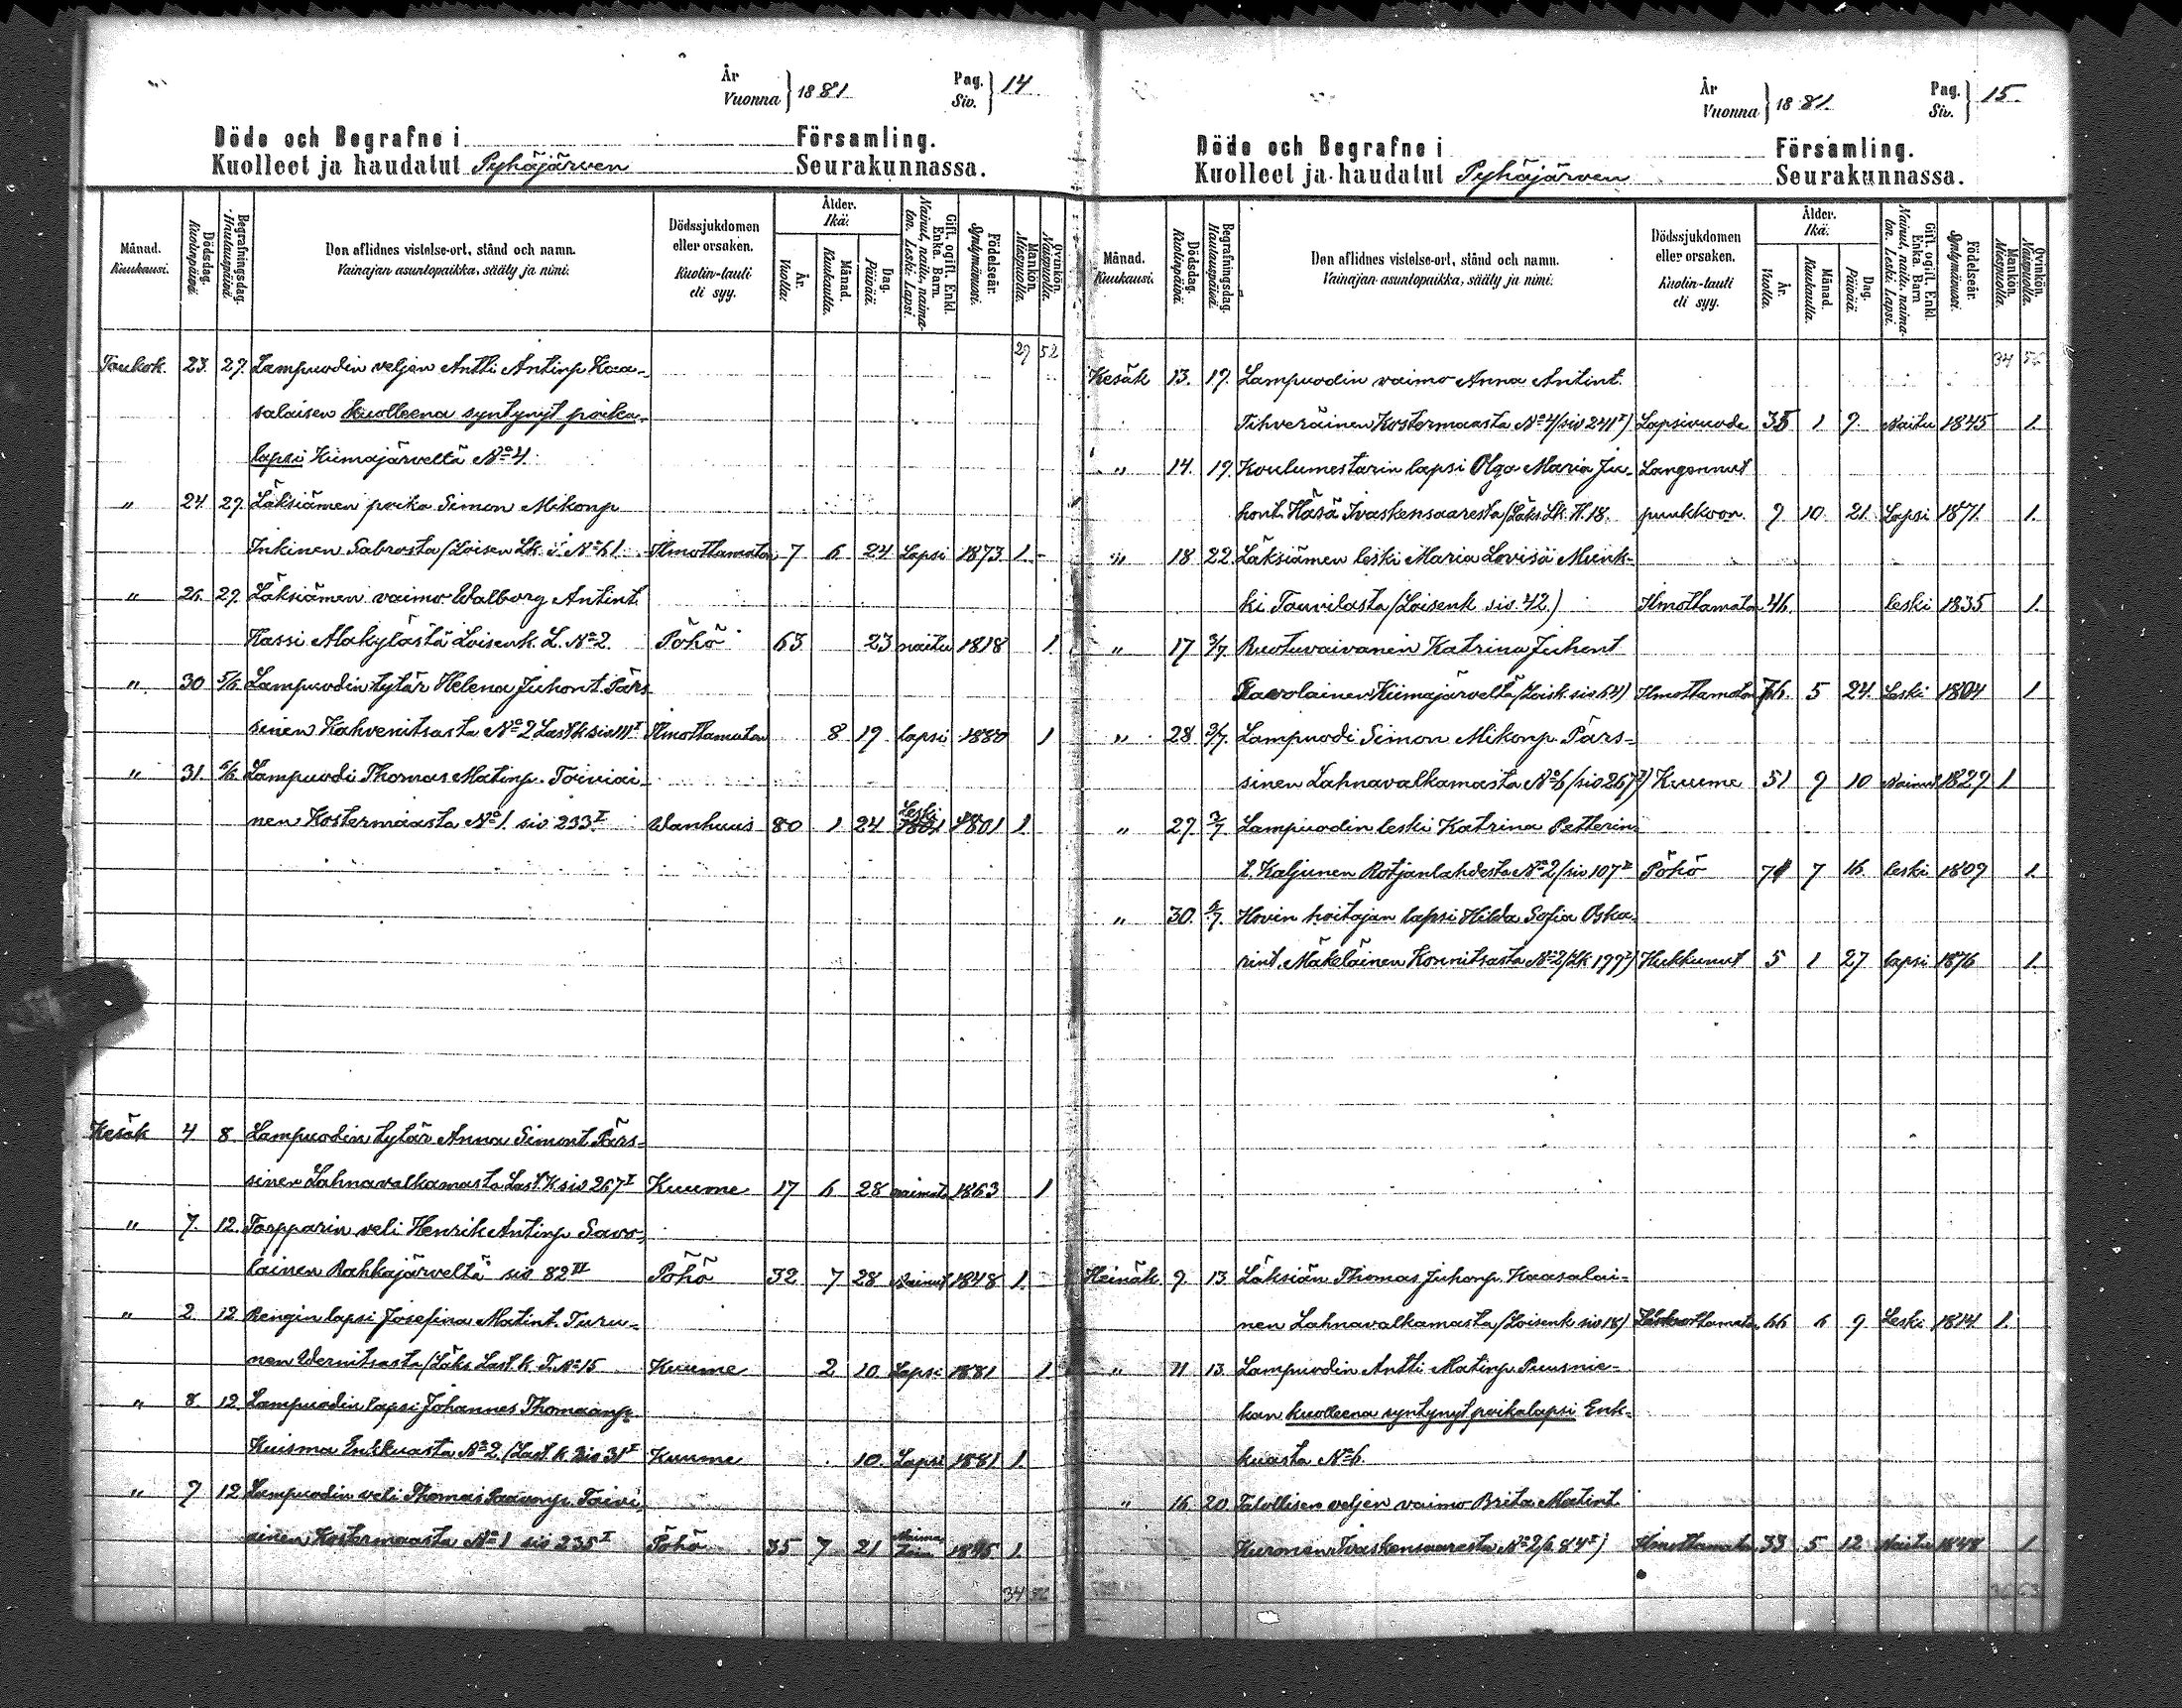 År
Vuonna } 1881 Pag. Siv. } 14
Döde och Begrafne i Församling.
Kuolleet ja haudatut Pyhäjärven Seurakunnassa.
Månad. Kuukausi. Dödsdag. Kuolinpäivä Begrafningsdag. Hautauspäivä Den aflidnes vistelse-ort, stånd och namn. Vainajan asuntopaikka, sääty ja nimi. Dödssjukdomen eller orsaken. Kuolin-tauti eli syy. Ålder. Ikä: År. Vuotta: Månad. Kuukautta. Dag. Päivää. Gift, ogift. Enkl. Enka. Barn. Nainut, naitu, naimaton. Leski. Lapsi. Födelseår. Syntymävuosi. Mankön. Miespuolia. Qvinkön. Naispuolia.
27 52
Toukok. 23. 27. Lampuodin veljen Antti Antinp. Kaa-
salaisen kuolleena syntynyt poika-
lapsi Kiimajärveltä No 4.
" 24 29. Läksiämen poika Simon Mikonp
Inkinen Sabrosta (Loisen Lk. S. No 61. Ilmottamaton 7 6 24 Lapsi 1873 1.
" 26. 29. Läksiämen vaimo Walborg Antint.
Hassi Alakylästä Loisenk. L. No 2. Pöhö 63 23 naitu 1818 1.
" 30 5/6 Lampuodin tytär Helena Juhont. Pärs
sinen Kahvenitsasta No 2 Last.k siv 111 I Ilmottamaton 8 19 lapsi 1880 1
" 31. 5/6 Lampuodi Thomas Matinp. Toiviai-
nen Kostermaasta No 1. siv 233 I. Wanhuus 80 1 24 Leski 1801 1.
Kesäk 4 8 Lampuodin tytär Anna Simont. Pärs-
sinen Lahnavalkamasta Last.K siv 267 I Kuume 17 6 28 naimat. 1863 1
" 7. 12. Torpparin veli Henrik Antinp. Savo-
lainen Rahkajärveltä siv 82 III Pöhö 32 7 28 Nainut 1848 1.
" 2 12 Rengin lapsi Josefina Matint. Turu-
nen Wernitsasta (Läks. Last.k. T. No 15 Kuume 2 10 Lapsi 1881 1
" 8. 12. Lampuodin lapsi Johannes Thomaanp.
Kuisma Enkkuasta No 2. (Last. k. siv 31 I Kuume 10. Lapsi 1881 1.
" 9 12 Lampuodin veli Thomas Paavonp. Toivi
ainen Kostermaasta No 1 siv 235 I Pöhö 35 7 21 Naima- 1845 1.
34
År
Vuonna } 1881. Pag. Siv. } 15.
Döde och Begrafne i Församling.
Kuolleet ja haudatut Pyhäjärven Seurakunnassa.
Månad. Kuukausi. Dödsdag. Kuolinpäivä. Begrafningsdag. Hautauspäivä. Den aflidnes vistelse-ort, stånd och namn. Vainajan asuntopaikka, sääty ja nimi. Dödssjukdomen eller orsaken. Kuolin-tauti eli syy. Ålder. Ikä: År. Vuotta. Månad. Kuukautta. Dag. Päivää. Gift, ogift. Enkl. Enka. Barn Nainut, naitu, naimaton. Leski. Lapsi. Födelseår. Syntymävuosi. Mankön. Miespuolia. Qvinkön. Naispuolia.
34
Kesäk 13. 19. Lampuodin vaimo Anna Antint.
Tihveräinen Kostermaasta No 4 (siv 241 I) Lapsivuode 35 1 9. Naitu 1845 1.
" 14. 19. Koulumestarin lapsi Olga Maria Ju- Langennut
hont. Häsä Ivaskensaaresta (Läks. Lk. H. 18. puukkoon. 9 10 21. Lapsi 1871. 1.
" 18 22. Läksiämen leski Maria Lovisa Munk-
ki Tauvilasta (Loisenk siv. 42.) Ilmottamaton 46. leski 1835 1.
" 17 3/7 Ruotuvaivanen Katrina Juhont
Savolainen Kiimajärveltä (Loisk. siv 64) Ilmottamaton 76. 5 24. Leski 1804 1
" 28 3/7. Lampuodi Simon Mikonp. Pärs-
sinen Lahnavalkamasta No 6 (siv 267 I) Kuume 51 9 10 Nainut 1829 1
" 29 3/7 Lampuodin leski Katrina Petterin
t. Kaljunen Rotjanlahdesta No 2 (siv 107 II Pöhö 71 7 16. leski 1809 1.
" 30. Hovin hoitajan lapsi Hilda Sofia Oska-
rint. Mäkeläinen Konnitsasta No 2 (Lk 199 I) Hukkunut 5 1 27 lapsi 1876 1.
Heinäk. 9. 13. Läksiän Thomas Juhonp. Kaasalai-
nen Lahnavalkamasta (Loisenk siv 18) 66 6 9 Leski 1814 1.
" 11 13. Lampuodin Antti Matinp. Puusnie-
kan kuolleena syntynyt poikalapsi Enk-
kuasta No 6.
" 16. 20 Talollisen veljen vaimo Brita Matint.
Kuronen Ivaskensaaresta No 2 (s. 84 I) Ilmottamaton 33 5 12 Naitu 1848 1